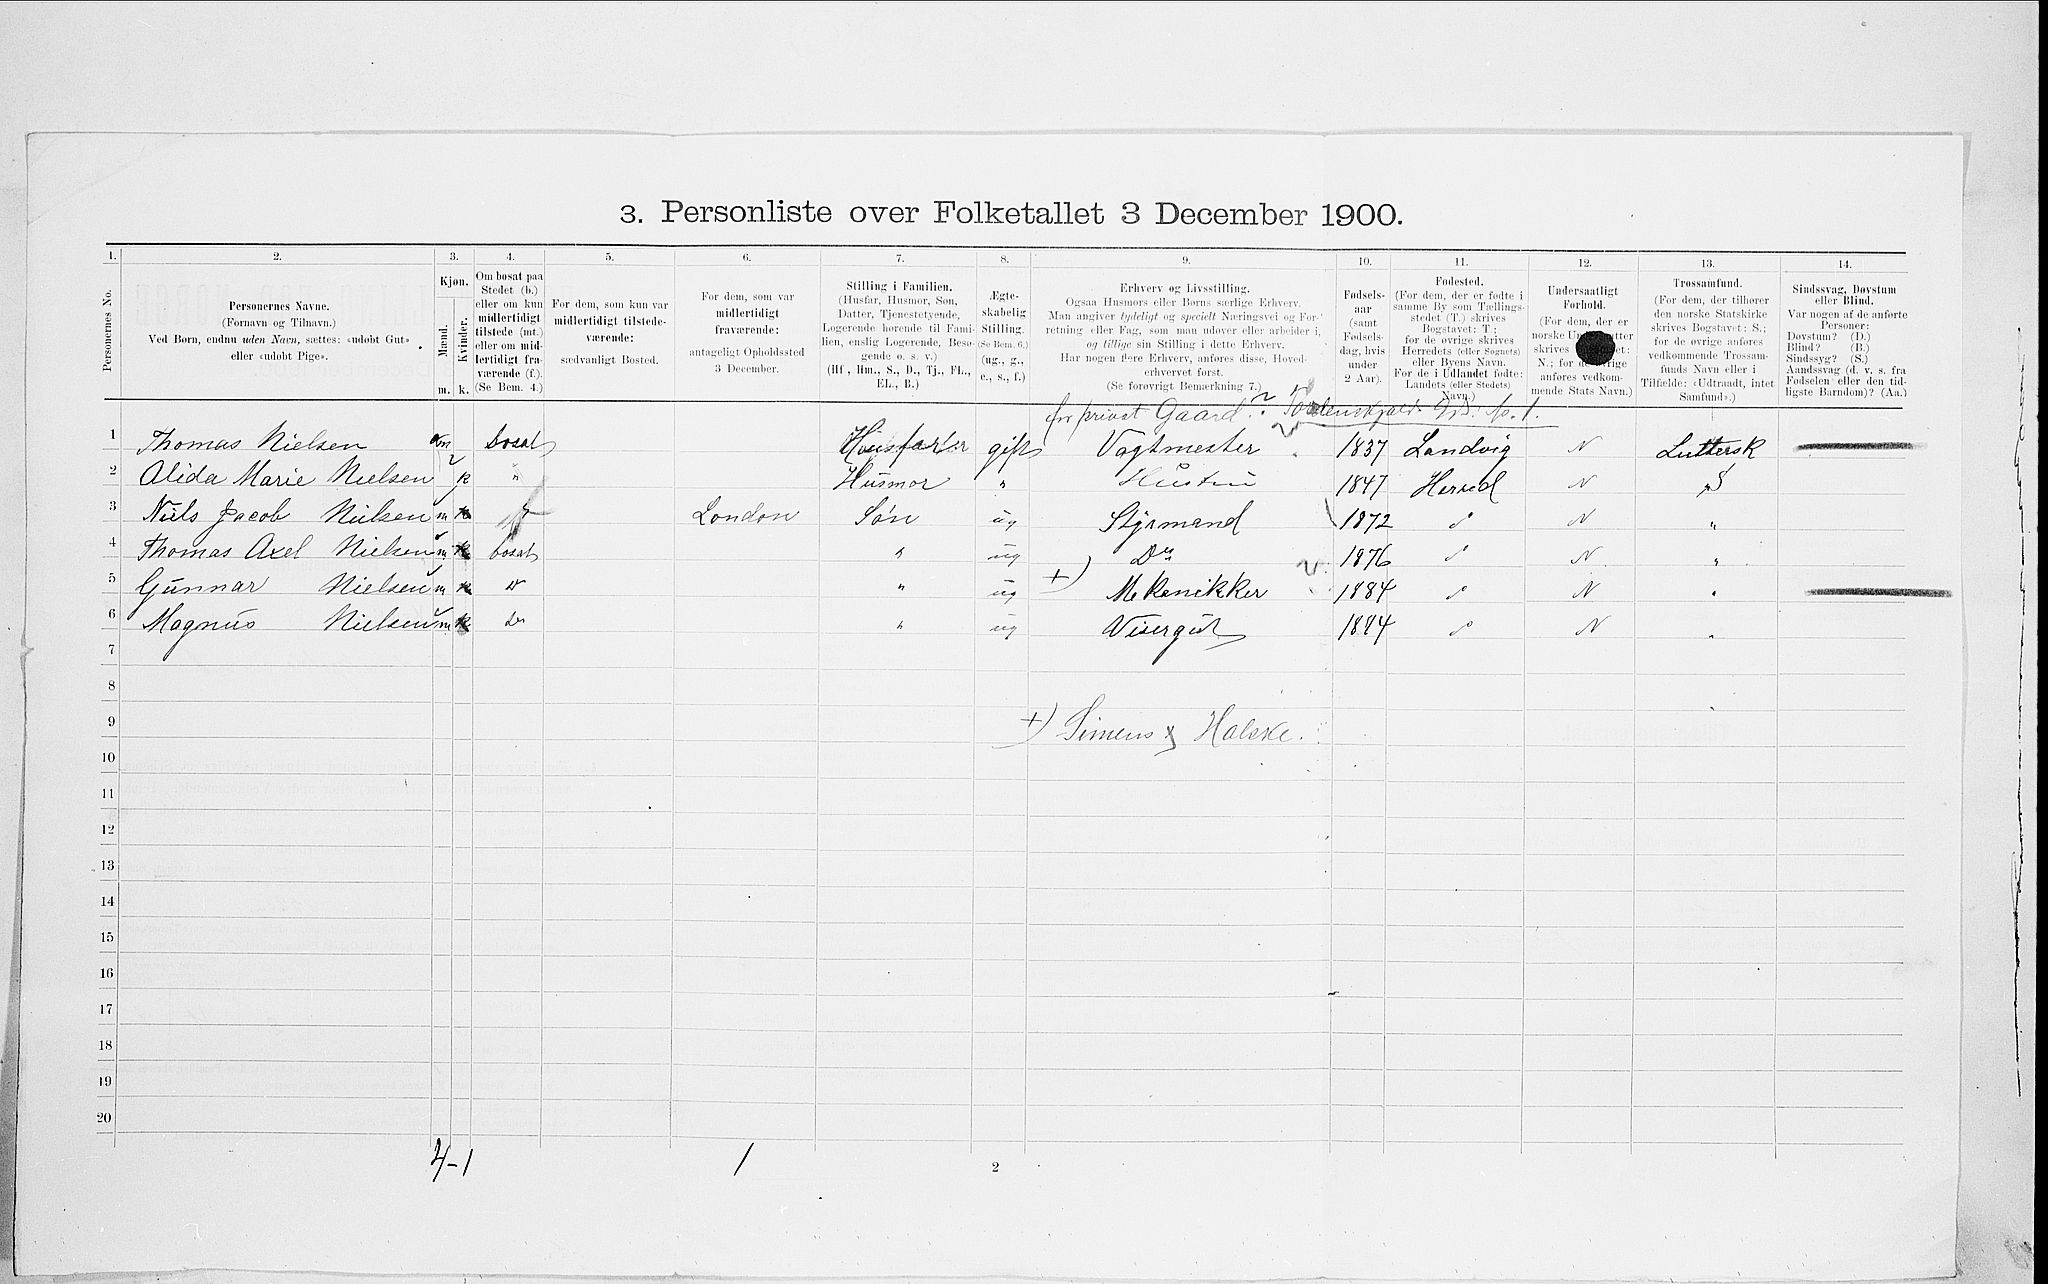 3. Personliste over Folketallet 3 December 1900.
1. 2. 3. 4. 5. 6. 7. 8. 9. 10. 11. 12. 13. 14.
Personernes No.
Personernes Navne.
(Fornavn og Tilnavn.)
Ved Børn, endnu uden Navn, sættes: «udøbt Gut»
eller «udøbt Pige».
Kjøn.
Mænd.
Kvinder.
m. k.
Om bosat paa
Stedet (b.)
eller om kun
midlertidigt
tilstede (mt.)
eller om mid-
lertidigt fra-
værende (f.).
(Se Bem. 4.)
For dem, som kun var
midlertidigt tilstede-
værende:
sædvanligt Bosted.
For dem, som var
midlertidigt
fraværende:
antageligt Opholdssted
3 December.
Stilling i Familien.
(Husfar, Husmor, Søn,
Datter, Tjenestetyende,
Logerende hørende til Fami-
lien, enslig Logerende, Besø-
gende o. s. v.)
(Hf., Hm., S., D., Tj., FL.,
EL., B.)
Ægte-
skabelig
Stilling.
(Se Bem. 6.)
(ug., g.,
e., s., f.)
Erhverv og Livsstilling.
Ogsaa Husmors eller Børns særlige Erhverv.
Man angiver tydeligt og specielt Næringsvei og For-
retning eller Fag, som man udøver eller arbeider i,
og tillige sin Stilling i dette Erhverv.
Har nogen flere Erhverv, anføres disse, Hoved-
erhvervet først.
(Se forøvrigt Bemerkning 7.)
Fødsels-
aar
(samt
Fødsels-
dag, hvis
under
2 Aar).
Fødested.
(For dem, der er fødte i
samme By som Tællings-
stedet (T.) skrives
Bogstavet: T.;
for de øvrige skrives
Herredets (eller Sognets)
eller Byens Navn.
For de i Udlandet fødte:
Landets (eller Stedets)
Navn.)
Undersaatligt
Forhold.
(For dem, der er
norske
skrives
N.; for
anføres vedkom-
mende Stats Navn.)
Trossamfund.
(For dem, der tilhører
den norske Statskirke
skrives Bogstavet: S.;
for de øvrige anføres
vedkommende Trossam-
funds Navn eller i
Tilfælde: «Udtraadt, intet
Samfund».)
Sindssvag, Døvstum
eller Blind.
Var nogen af de anførte
Personer:
Døvstum? (D.)
Blind? (B.)
Sindssyg? (S.)
Aandssvag (d. v. s. fra
Fødselen eller den tid-
ligste Barndom)? (Aa.)
for privat Gaard. Tordenskjolds Gd. No. 1.
1 Thomas Nielsen m bosat Husfar gift Vagtmester 1837 Landvig N Luttersk
2 Alida Marie Nielsen k " Husmor " Hustru 1847 Herred N "
3 Niels Jacob Nielsen m f London Søn ug Styrmand 1872 " N "
4 Thomas Axel Nielsen m bosat " ug Do 1876 " N "
5 Gunnar Nielsen m " " ug +) Mekanikker 1884 " N "
6 Magnus Nielsen m Do " ug Visergut 1884 " N "
7
8
9 +) Simens & Halske.
10
11
12
13
14
15
16
17
18
19
20
4-1 1 2